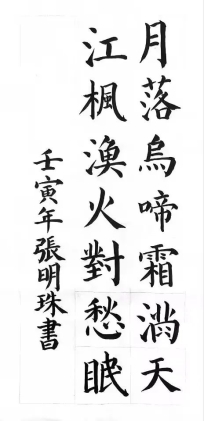 月落烏啼霜滿天
江楓漁火對愁眠
壬寅年張明珠書